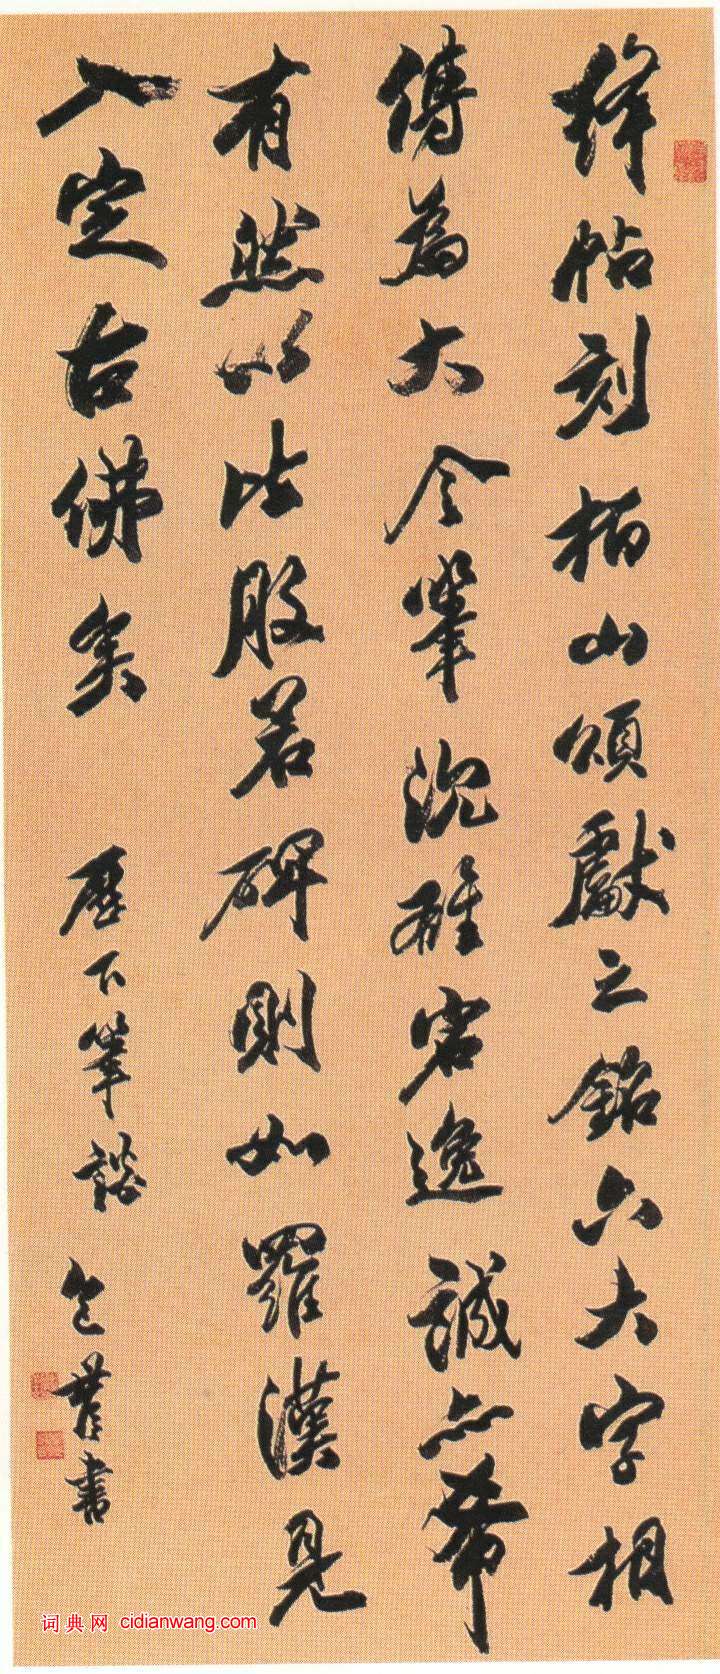 絳帖刻柏山頌獻之銘六大字相
傳為大令筆沉雄宕逸誠亦希
有然以比般若碑則如羅漢見
入定古佛矣 歷下筆談 書
词典网 cidianwang.com